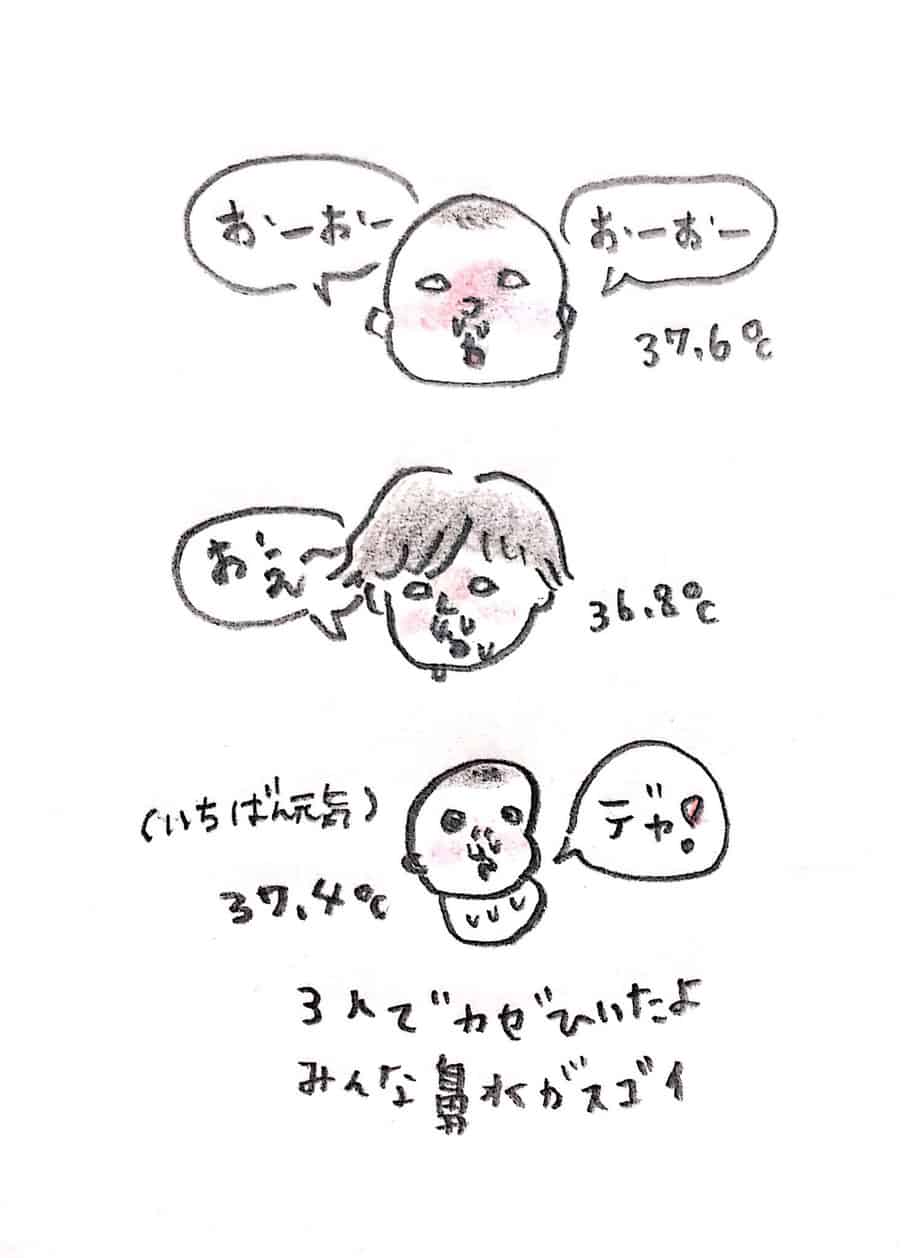 おーおー
おーおー
37.6℃
おえ〜
36.8℃
(いちばん元気)
デャ!
37.4℃
3人でカゼひいたよ
みんな鼻水がスゴイ